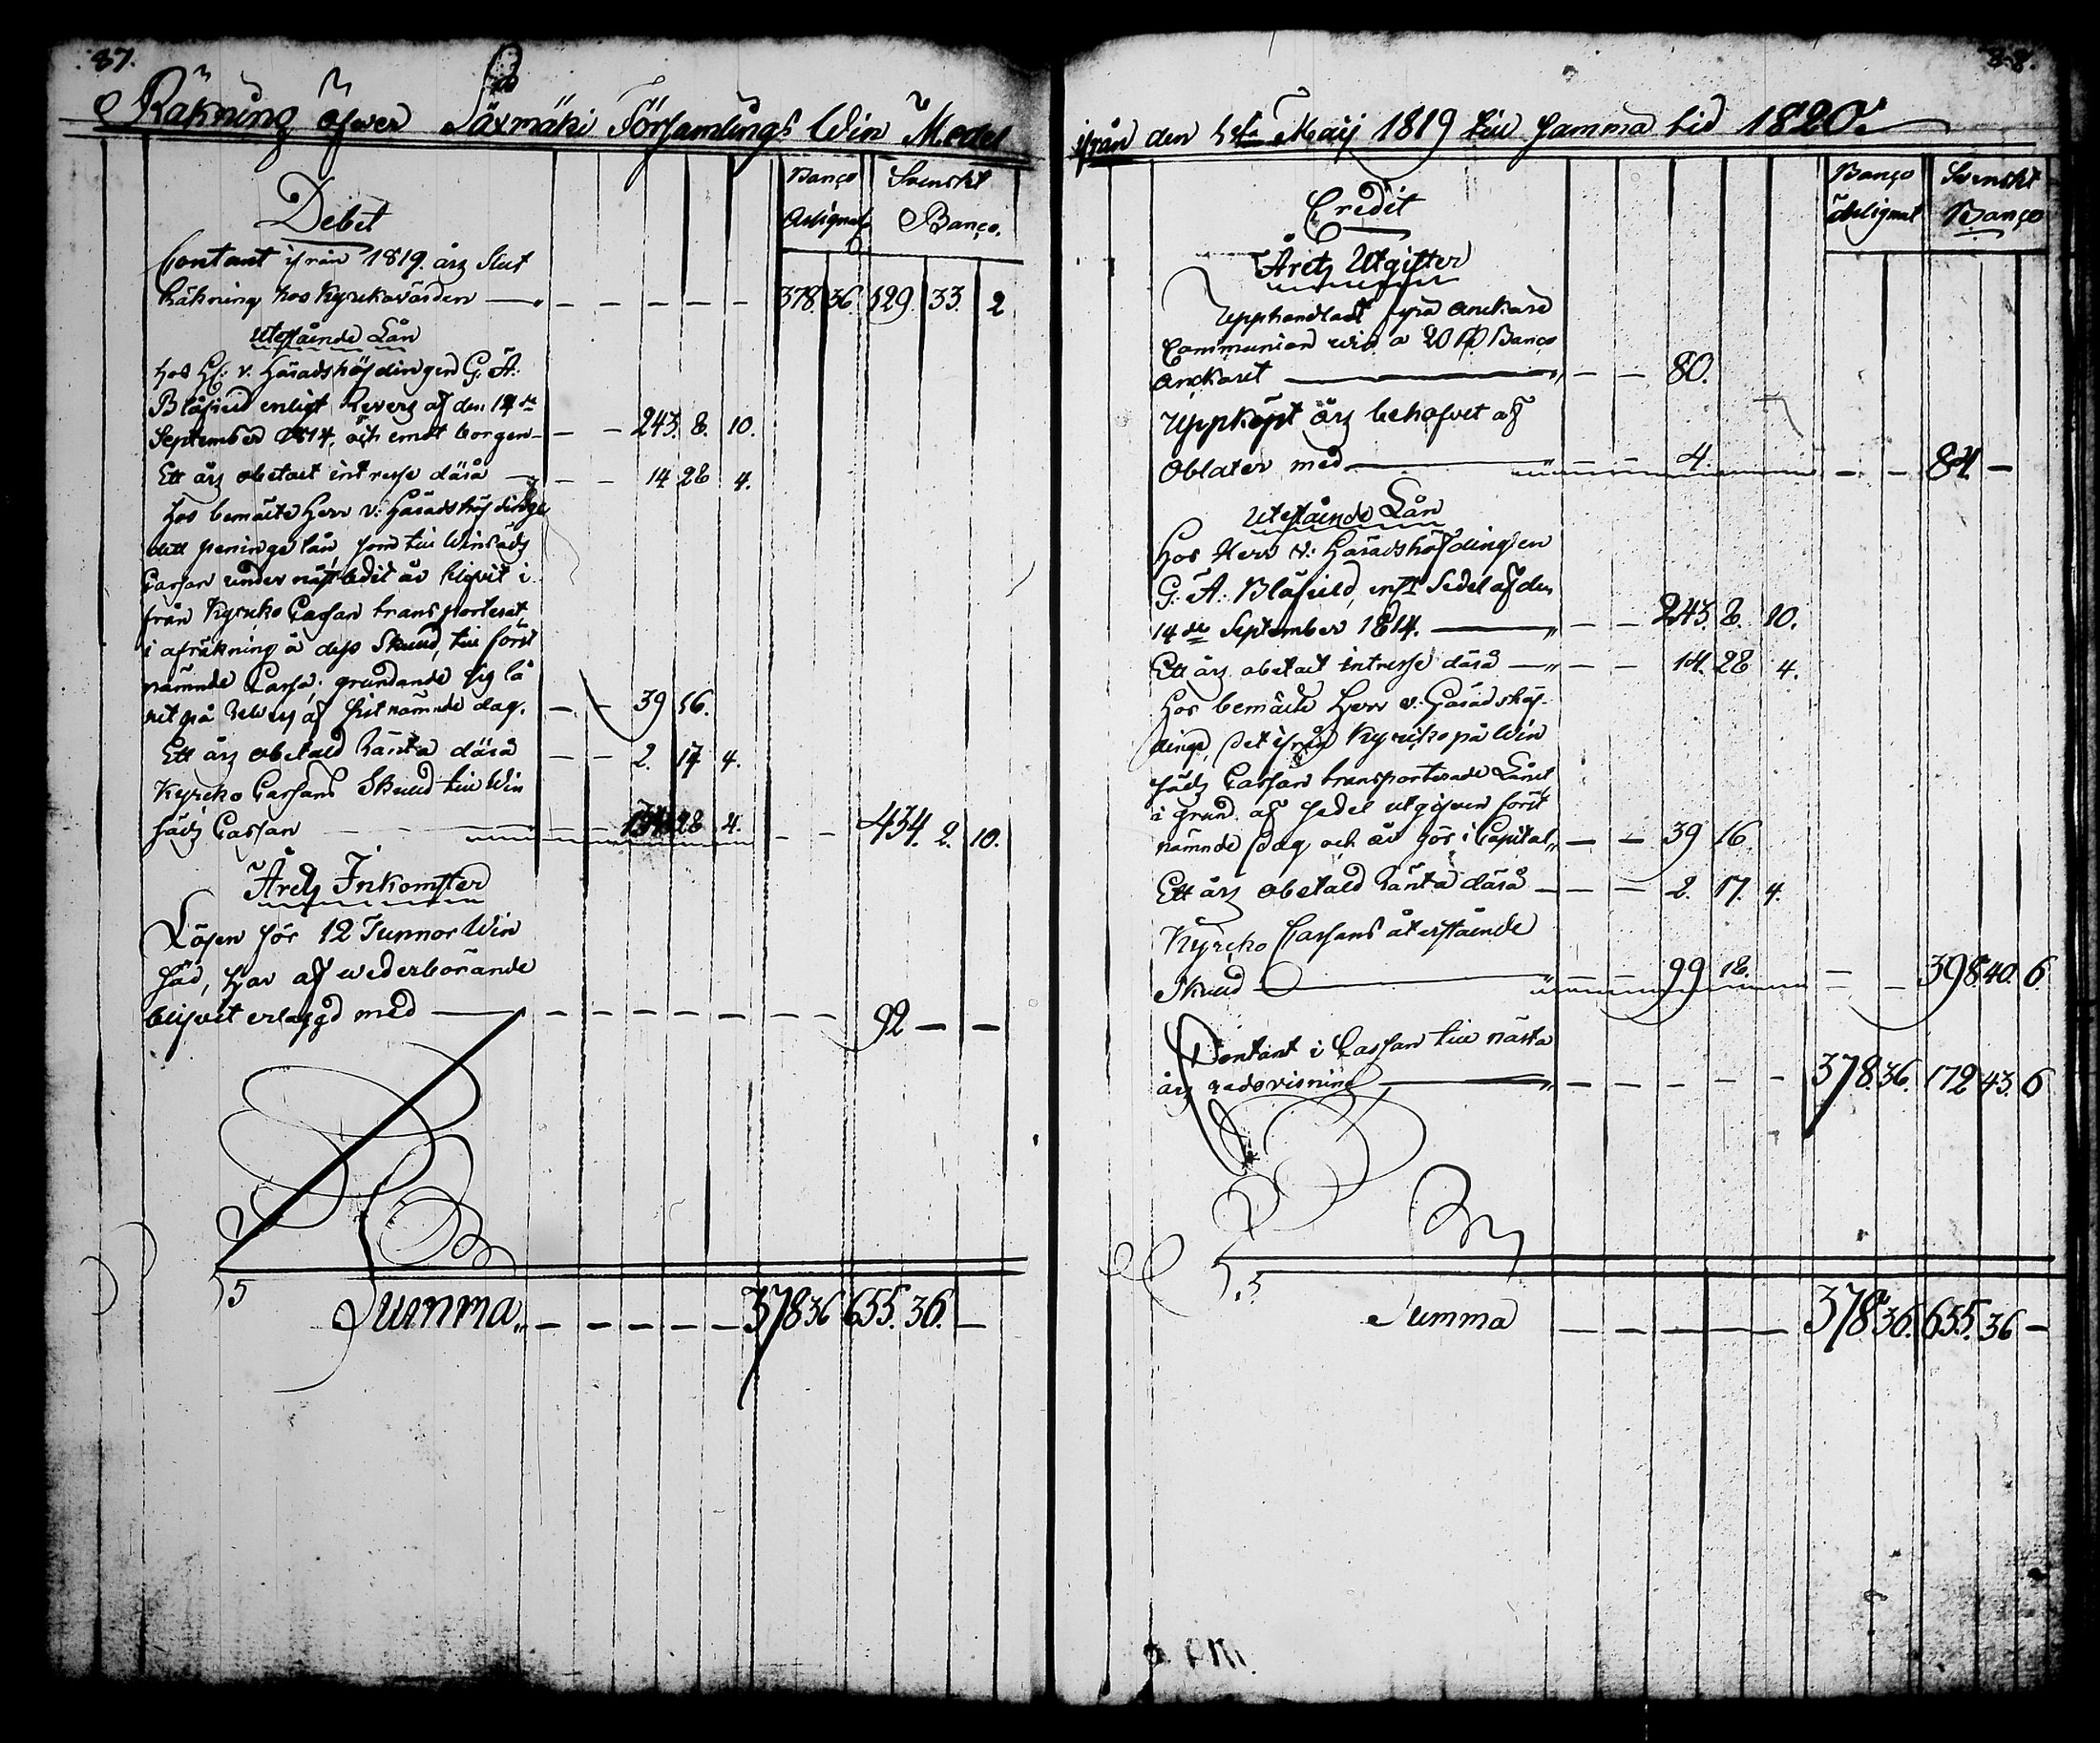 87.
Räkning öfwer Säxmäki Församlings Win Medel
Banco Svenskt
Assignat Banco.
Debet
Contant ifrån 1819 års Slut
Räkning hos Kyrckovärden — 378. 36. 129. 33. 2
Utestående Lån
hos Hr. v. Häradshöfdingen G. A.
Blåfield enligt Revers af den 14de
September 1814, och emot borgen — 243. 8. 10.
Ett års obetalt intresse därå — 14 28 4.
Hos bemälte Herr v. Häradshöfdinge
det peninge lån, som till Winsädz
Cassan under näst ledit år blifvit i
från Kyrcko Cassan transporterat
i afräkning å dess Skuld, till först
nämnde Cassa, grundande sig lå
net på Revers af sist nämnde dag. — 39 16.
Ett års obetald Ränta därå — 2. 17 4.
Kyrcko Cassans Skuld till Win
sädz Cassan — 134 28 4. — 434. 2. 10.
Årets Inkomster
Lösen för 12 Tunnor Win
säd, har af wederbörande
blifvit erlaggd med — 92 — —
Summa — 378 36 655. 36. —
88.
ifrån den 1sta Maij 1819 till samma tid 1820.
Banco Svenskt
Assignat Banco
Credit
Årets Utgifter
Upphandladt fyra Anckare
Communion win a 20 Rd Banco
Anckaret — 80.
Uppköpt års behofvet af
Oblater med — 4. — 84 —
Utestående Lån
Hos Herr v. Häradshöfdingen
G. A. Blåfield, enl Sedel af den
14de September 1814. — 243. 8. 10.
Ett års obetalt intresse därå — 14. 28 4.
Hos bemälte Herr v. Häradshöf-
dinge, det ifrån Kyrcko på Win
sädz Cassan transporterade Lånet
i grund af sedel utgifven först
nämnde dag och är för i Capital — 39 16.
Ett års obetald Ränta därå — 2. 17. 4.
Kyrcko Cassans återstående
Skuld — 99 18. — 398. 40. 6.
Contant i Cassan till nästa
års redovisning — 378. 36. 172 43. 6
Summa — 378 36. 655. 36 —